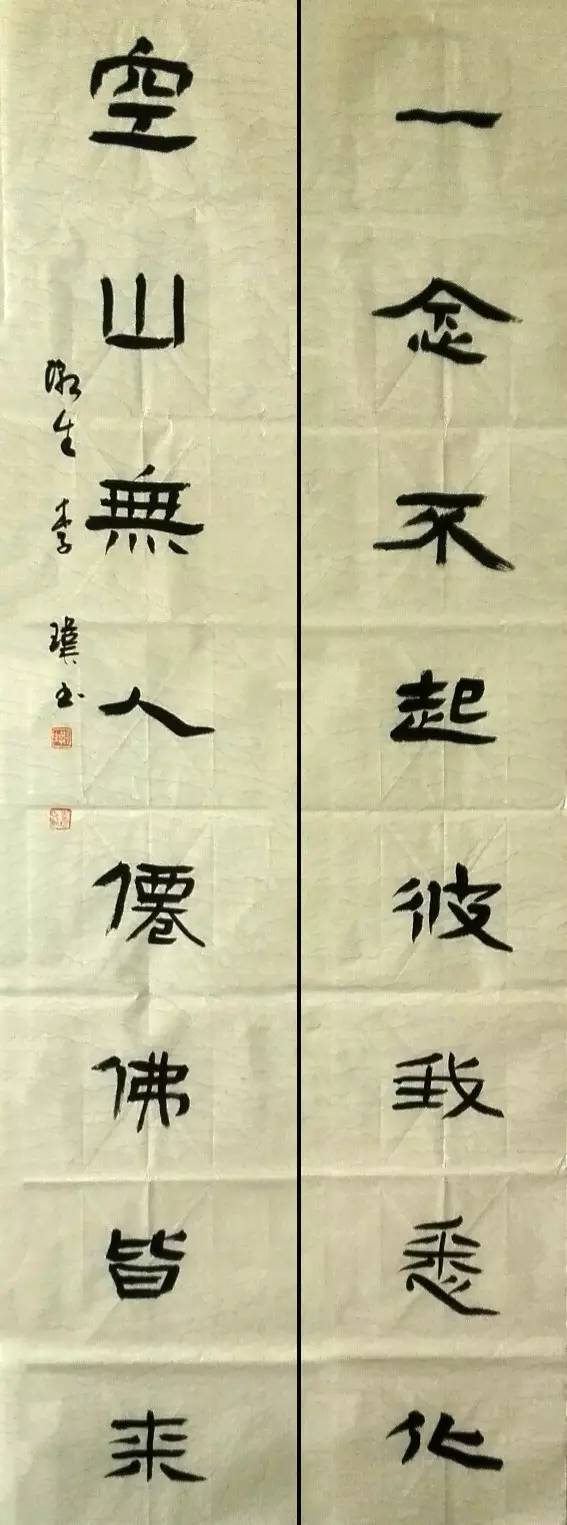 一念不起彼我悉化
空山無人僊佛皆来
生李璞书